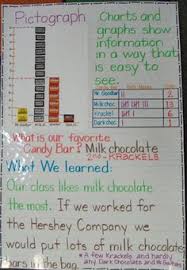 Pictograph
Charts and
graphs show
information
in a way that
is easy to
see.
Mr. Goodbar
Milk choc
Krackel
Dark choc
2
13
6
1
What is our favorite
Candy Bar? Milk chocolate
2nd - KRACKELS
What We learned:
Our class likes milk chocolate
the most. If we worked for
the Hershey Company we
would put lots of milk choc.
bars in the bag.
* A few Krackels and hardly
any Dark Chocolate and Mr. Goodbars